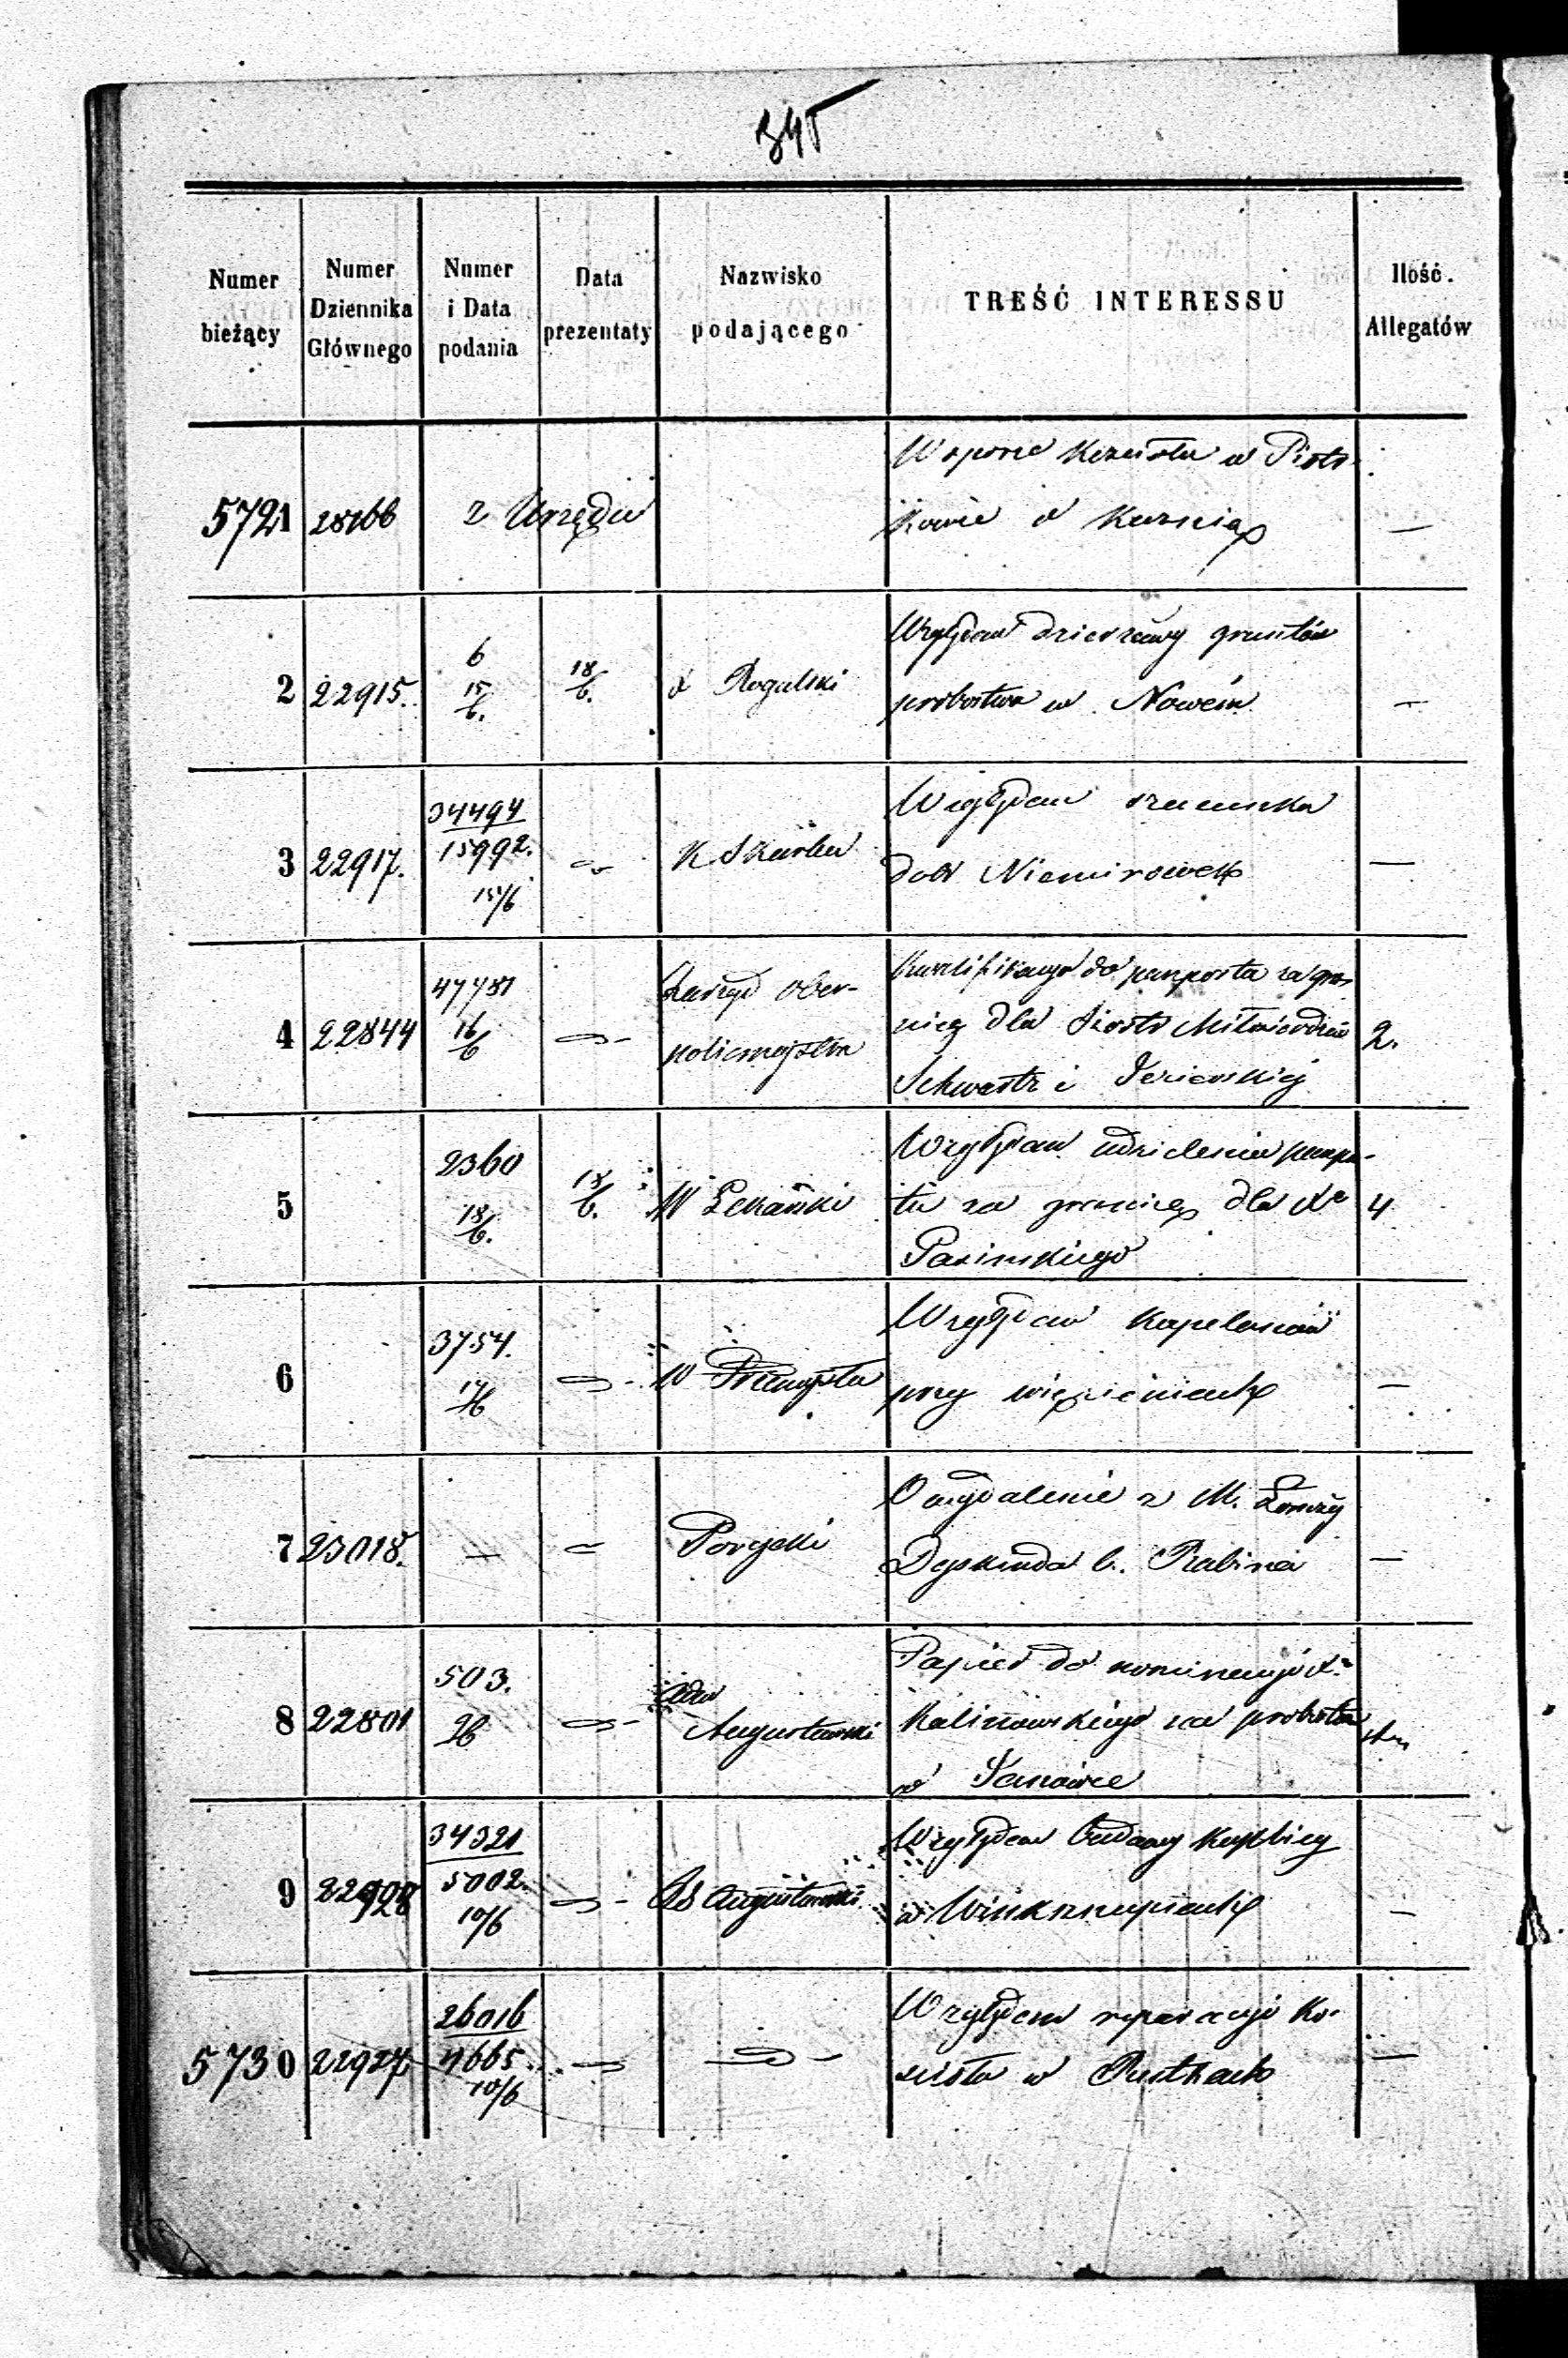 345
Numer bieżący
Numer Dziennika Głównego
Numer i Data podania
Data prezentaty
Nazwisko podającego
TREŚĆ INTERESSU
Ilość Allegatów
5721 z Urzędu
W sporze Kościoła w Piotr-
kowie o
—
2 22915. 6 15/6. 18/6. X Rogalski
Względem dzierżawy gruntów
probostwa w Nowém
—
3 22917. 34494 15992. 15/6 K Skarbu
Względem szacunku
dóbr Niemirowek
—
4 22844 47781 16/6 Zarząd Ober-
policmajstra
Kwalifikacye do paszportu za gra-
nicę dla Siostr Miłosierdzia
i Jezierskiej
2.
5 2360 18/6. 18/6. W Łekański
Względem udzielenia paszpo-
tu za granicę dla Xa
4
6 3754. 17/6 W
Względem Kapelanów
przy więzieniach
—
7 23018. — Porycki
O oddalenie z M. Łomży
b. Rabina
—
8 22801 503. 2/6 Adm Augustowski
Papier do nominacyi X.
Kalinowskiego na probostwo
w Janówce
9 22928 34321 5002. 10/6 Augustowski
Względem budowy kaplicy
w
—
5730 22927 26016 4665. 10/6
Względem reparacyi Ko-
ścioła w
—